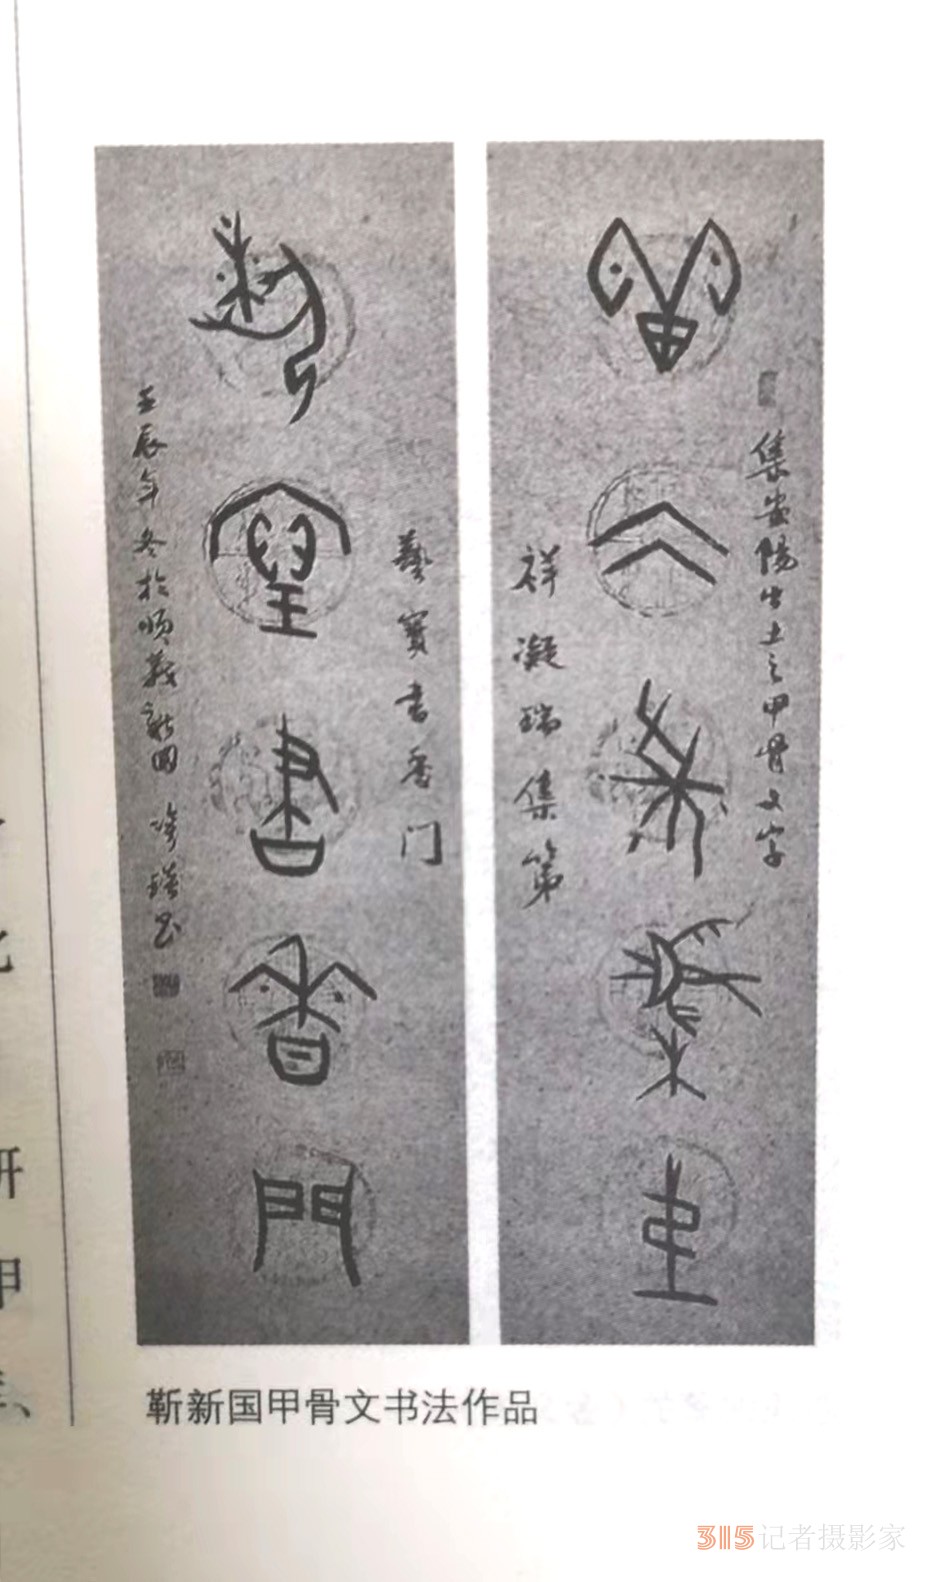 集安陽出土之甲骨文字
祥凝瑞集第
祥凝瑞集第
藝寶書香门
藝寶書香門
壬辰年冬於順義新國
靳新国甲骨文书法作品
315记者摄影家